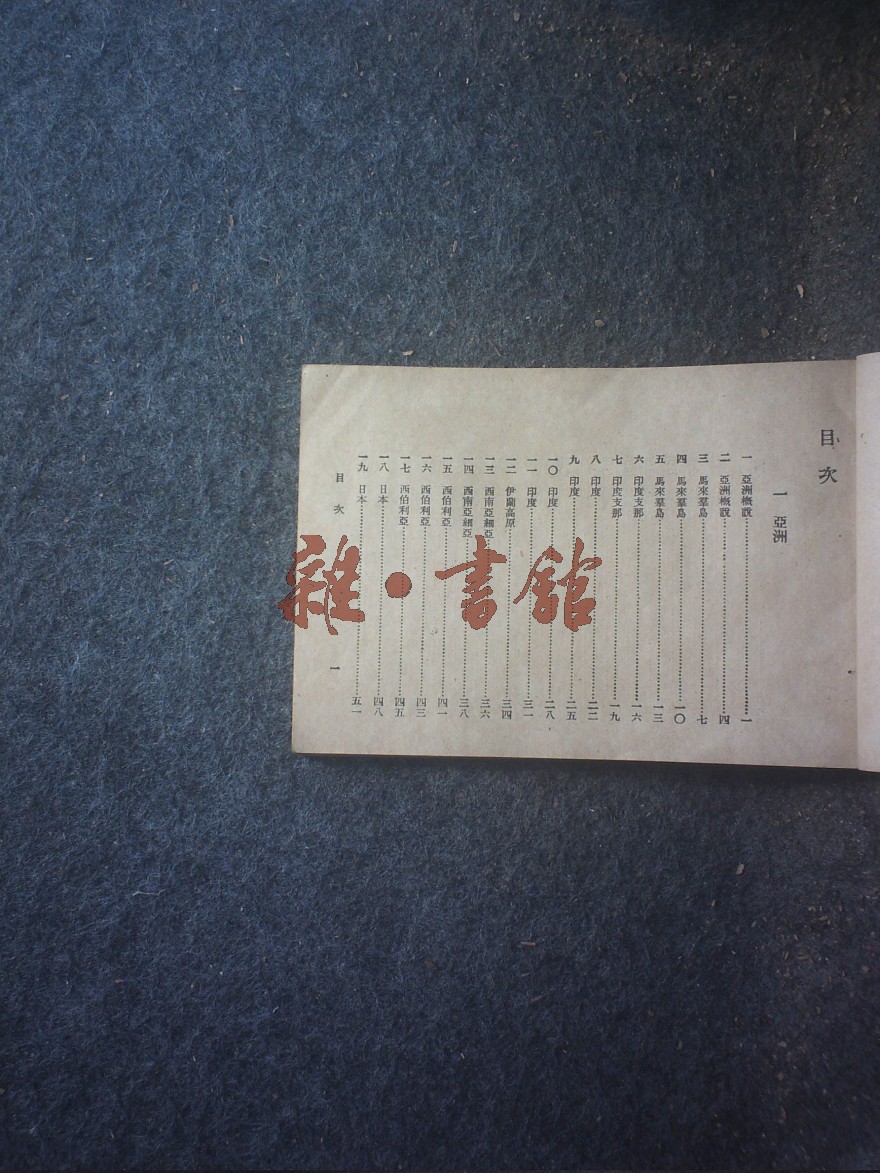 目次
一 亞洲
一 亞洲概說……一
二 亞洲概說……四
三 馬來羣島……七
四 馬來羣島……一〇
五 馬來羣島……一三
六 印度支那……一六
七 印度支那……一九
八 印度……二二
九 印度……二五
一〇 印度……二八
一一 印度……三一
一二 伊蘭高原……三四
一三 西南亞細亞……三六
一四 西南亞細亞……三八
一五 西伯利亞……四一
一六 西伯利亞……四三
一七 西伯利亞……四五
一八 日本……四八
一九 日本……五一
目次 一
雜·書館